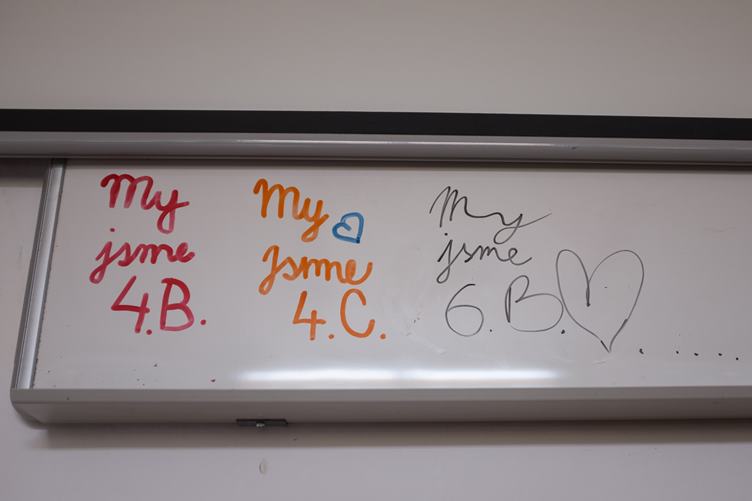 My
jsme
4.B.
My
Jsme
4.C.
My
jsme
6.B.